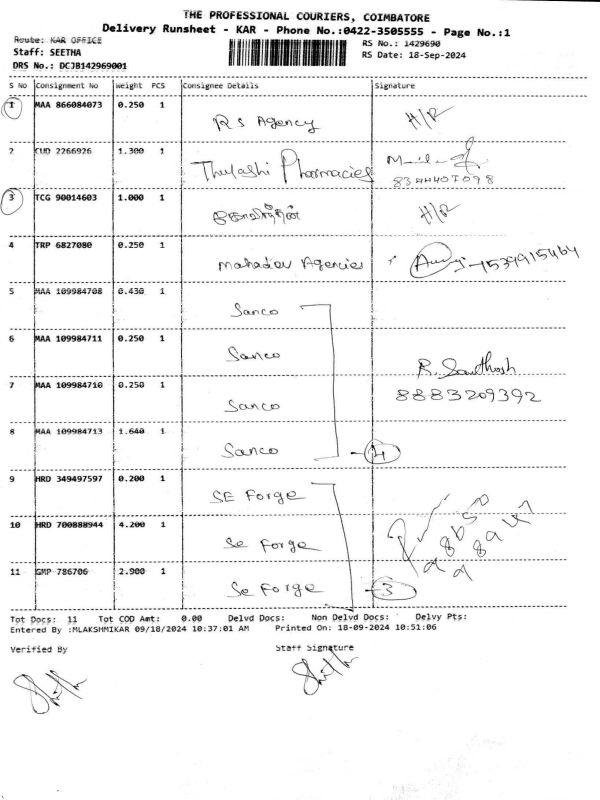 THE PROFESSIONAL COURIERS, COIMBATORE
Delivery Runsheet - KAR - Phone No.:0422-3505555 - Page No.:1
Route: KAR OFFICE RS No.: 1429690
Staff: SEETHA RS Date: 18-Sep-2024
DRS No.: DCJB142969001
S No Consignment No Weight PCS Consignee Details Signature
1 MAA 866084073 0.250 1 RS Agency H/R
2 CUD 2266926 1.300 1 Thulashi Pharmacies
8344407098
3 TCG 90014603 1.000 1 H/R
4 TRP 6827080 0.250 1 Mahadev Agencies
5 MAA 109984708 0.430 1 Sanco
6 MAA 109984711 0.250 1 Sanco R. Santhosh
7 MAA 109984710 0.250 1 Sanco 8883209392
8 MAA 109984713 1.640 1 Sanco - 4
9 HRD 349497597 0.200 1 SE Forge
10 HRD 700888944 4.200 1 Se Forge
11 GMP 786706 2.900 1 Se Forge - 3
Tot Docs: 11 Tot COD Amt: 0.00 Delvd Docs: Non Delvd Docs: Delvy Pts:
Entered By :MLAKSHMIKAR 09/18/2024 10:37:01 AM Printed On: 18-09-2024 10:51:06
Verified By Staff Signature